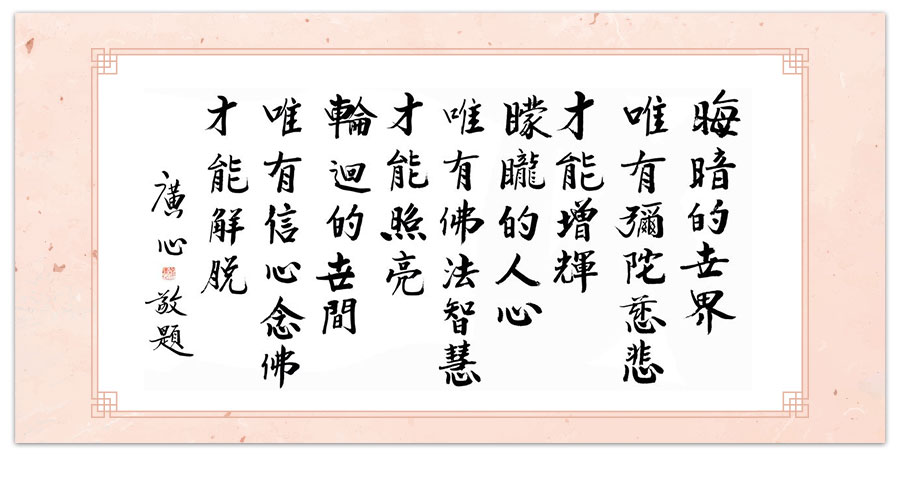 晦暗的世界
唯有彌陀慈悲
才能增輝
矇矓的人心
唯有佛法智慧
才能照亮
輪迴的世間
唯有信心念佛
才能解脫
廣心敬題